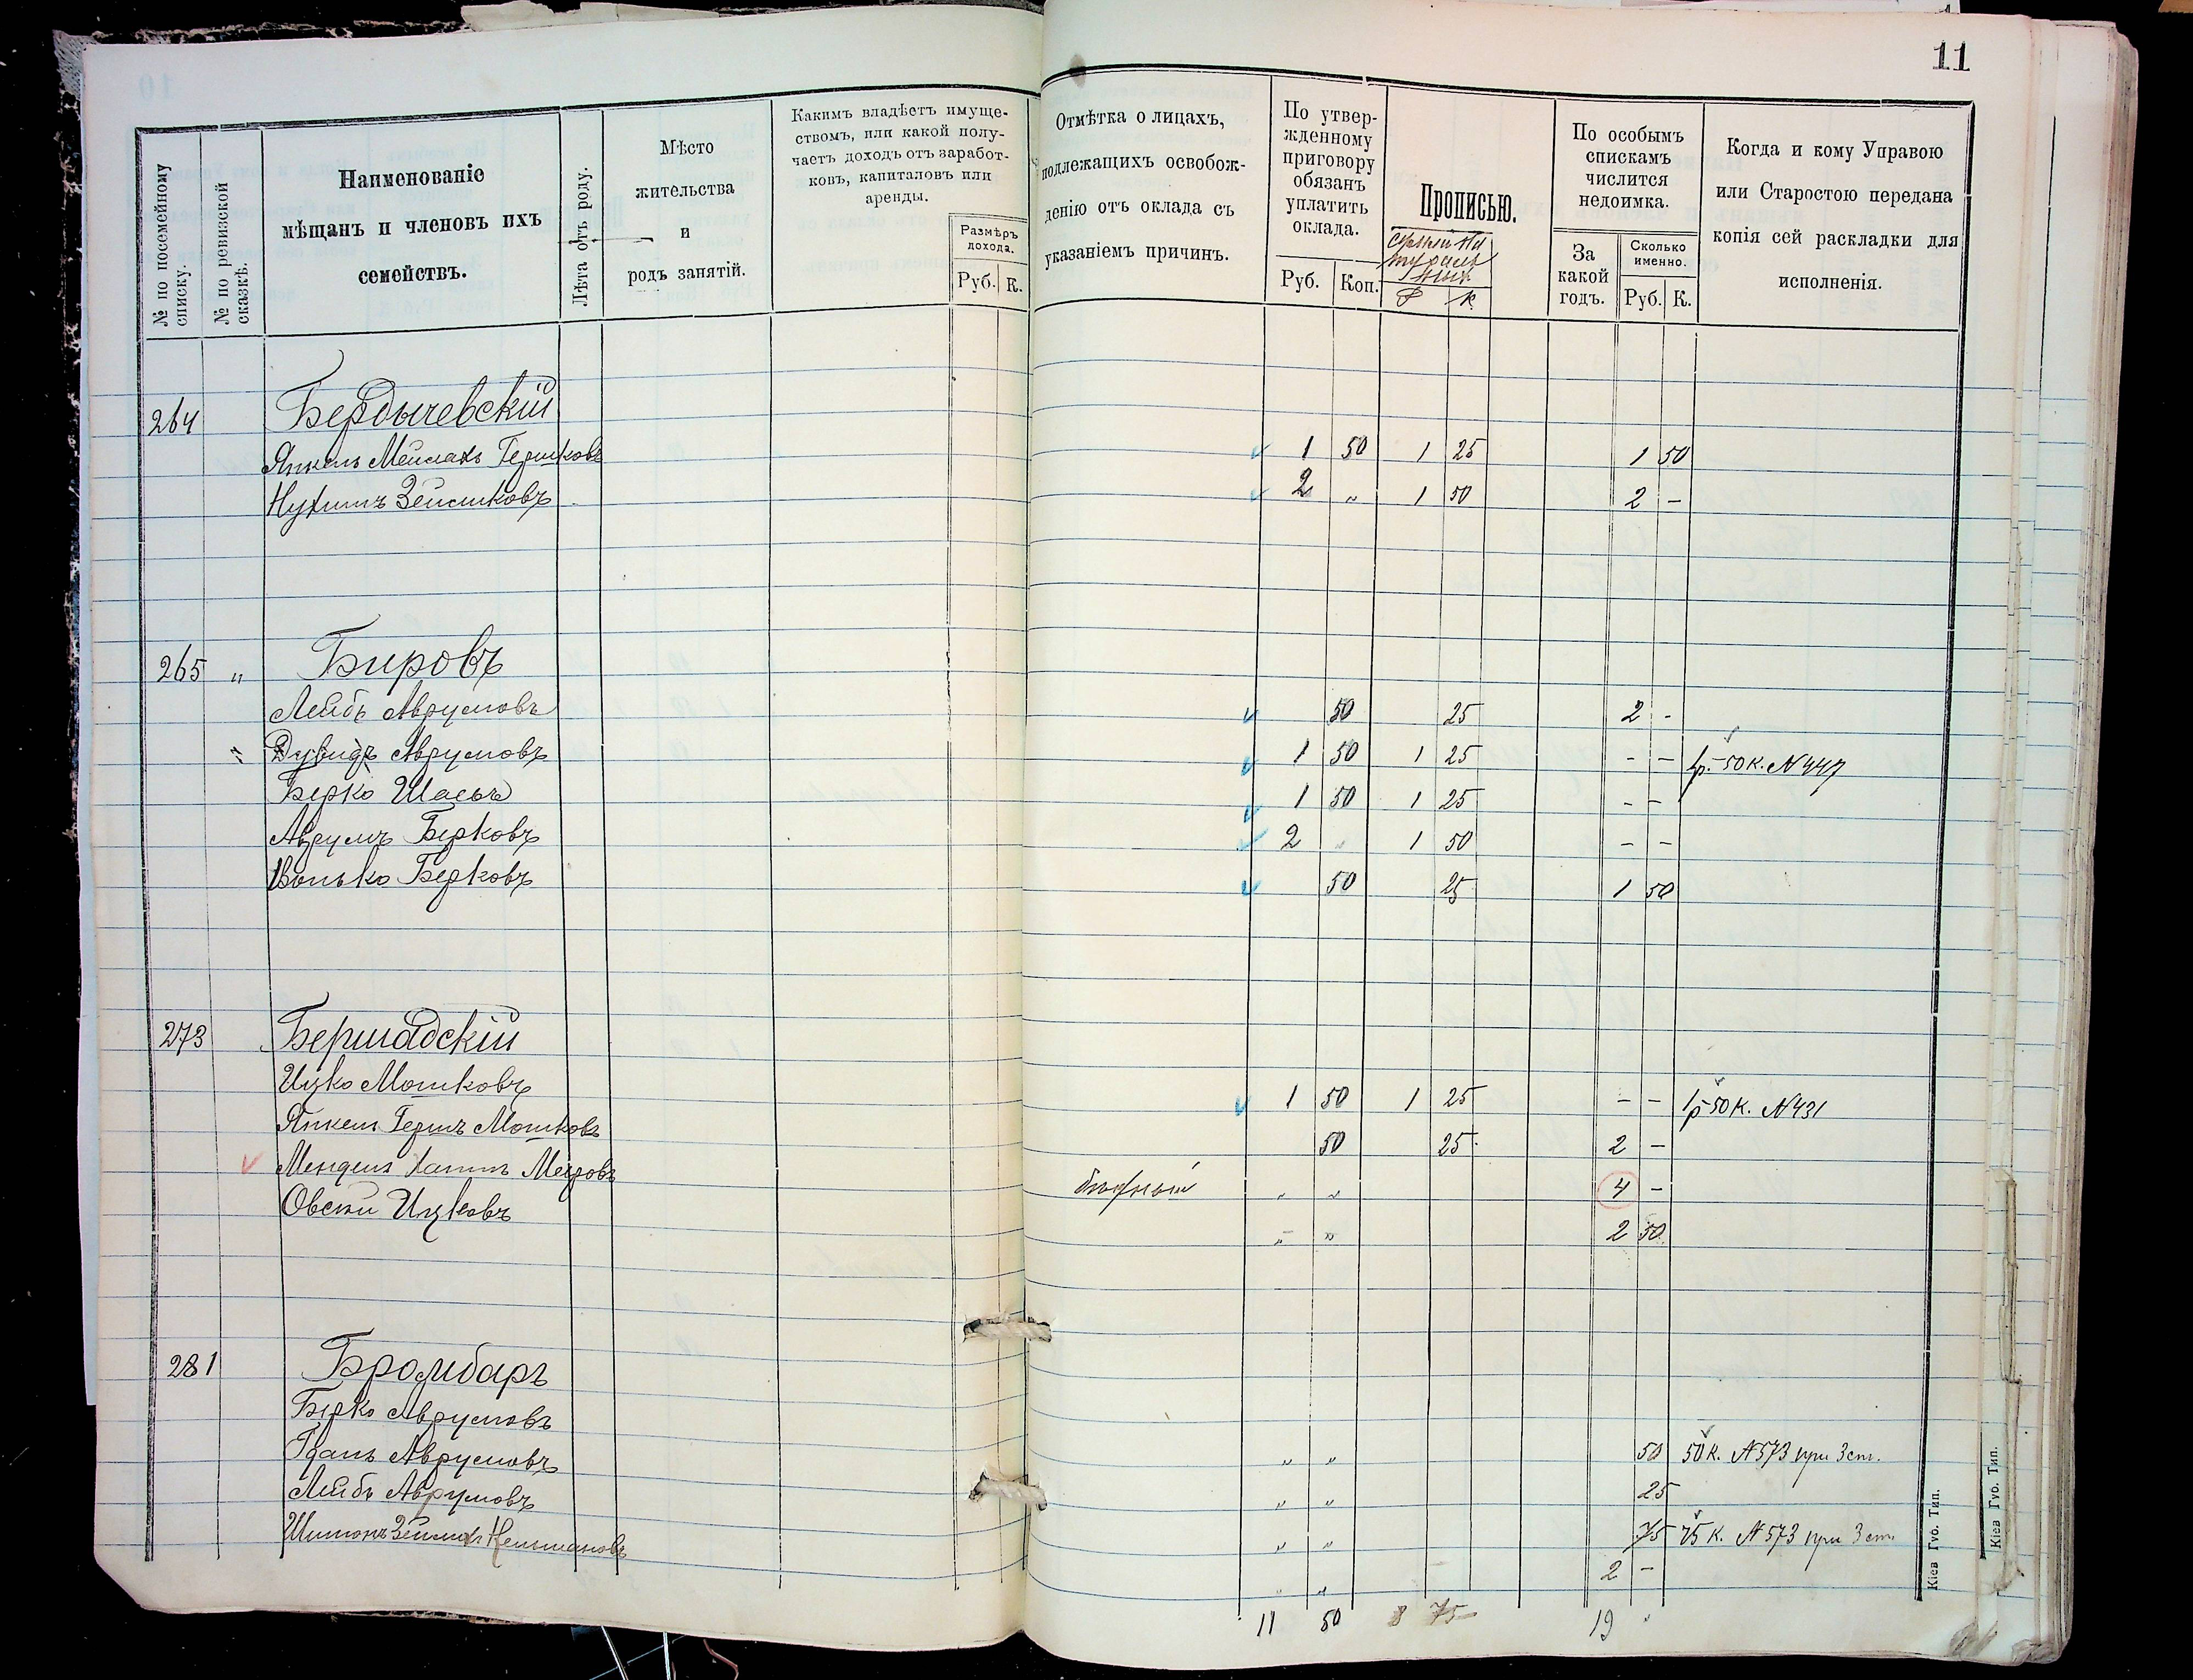 11
№ по посемейному
списку.
№ по ревизской
сказкѣ.
Наименованіе
мѣщанъ и членовъ ихъ
семействъ.
Лѣта отъ роду.
Мѣсто
жительства
и
родъ занятій.
Какимъ владѣетъ имуще-
ствомъ, или какой полу-
чаетъ доходъ отъ заработ-
ковъ, капиталовъ или
аренды.
Размѣръ
дохода.
Руб. К.
Отмѣтка о лицахъ,
подлежащихъ освобож-
денію отъ оклада съ
указаніемъ причинъ.
По утвер-
жденному
приговору
обязанъ
уплатить
оклада.
Руб. Коп.
Прописью.
Р К
По особымъ
спискамъ
числится
недоимка.
За
какой
годъ.
Сколько
именно.
Руб. К.
Когда и кому Управою
или Старостою передана
копія сей раскладки для
исполненія.
264 Бердычевскій
Янкель Мейлахъ Гершковъ 1 50 1 25 1 50
Нухимъ Зейликовъ 2 „ 1 50 2 -
265 „ Бировъ
Лейбъ Аврумовъ 50 25 2 -
„ Дувидъ Аврумовъ 1 50 1 25 - - 1р.-50к. №447
Берко Шаевъ 1 50 1 25 - -
Аврумъ Берковъ 2 „ 1 50 - -
Берковъ 50 25 1 50
273 Бершадскій
Ицко Мошковъ 1 50 1 25 - - 1р-50к. №431
Янкель Гершъ Мошковъ 50 25 2 -
Мендель Хаимъ Мееровъ бѣдный „ „ 4 -
Овсей Ицковъ „ „ 2 50
281 Бромбаръ
Берко Аврумовъ „ „ 50 50к. №573 при 3 ст.
Аврумовъ „ „ 25
Лейбъ Аврумовъ „ „ 75 75к. №573 при 3 ст.
Шимонъ „ „ 2 -
11 50 8 75 19
Кіев Губ. Тип.
Кіев Губ. Тип.